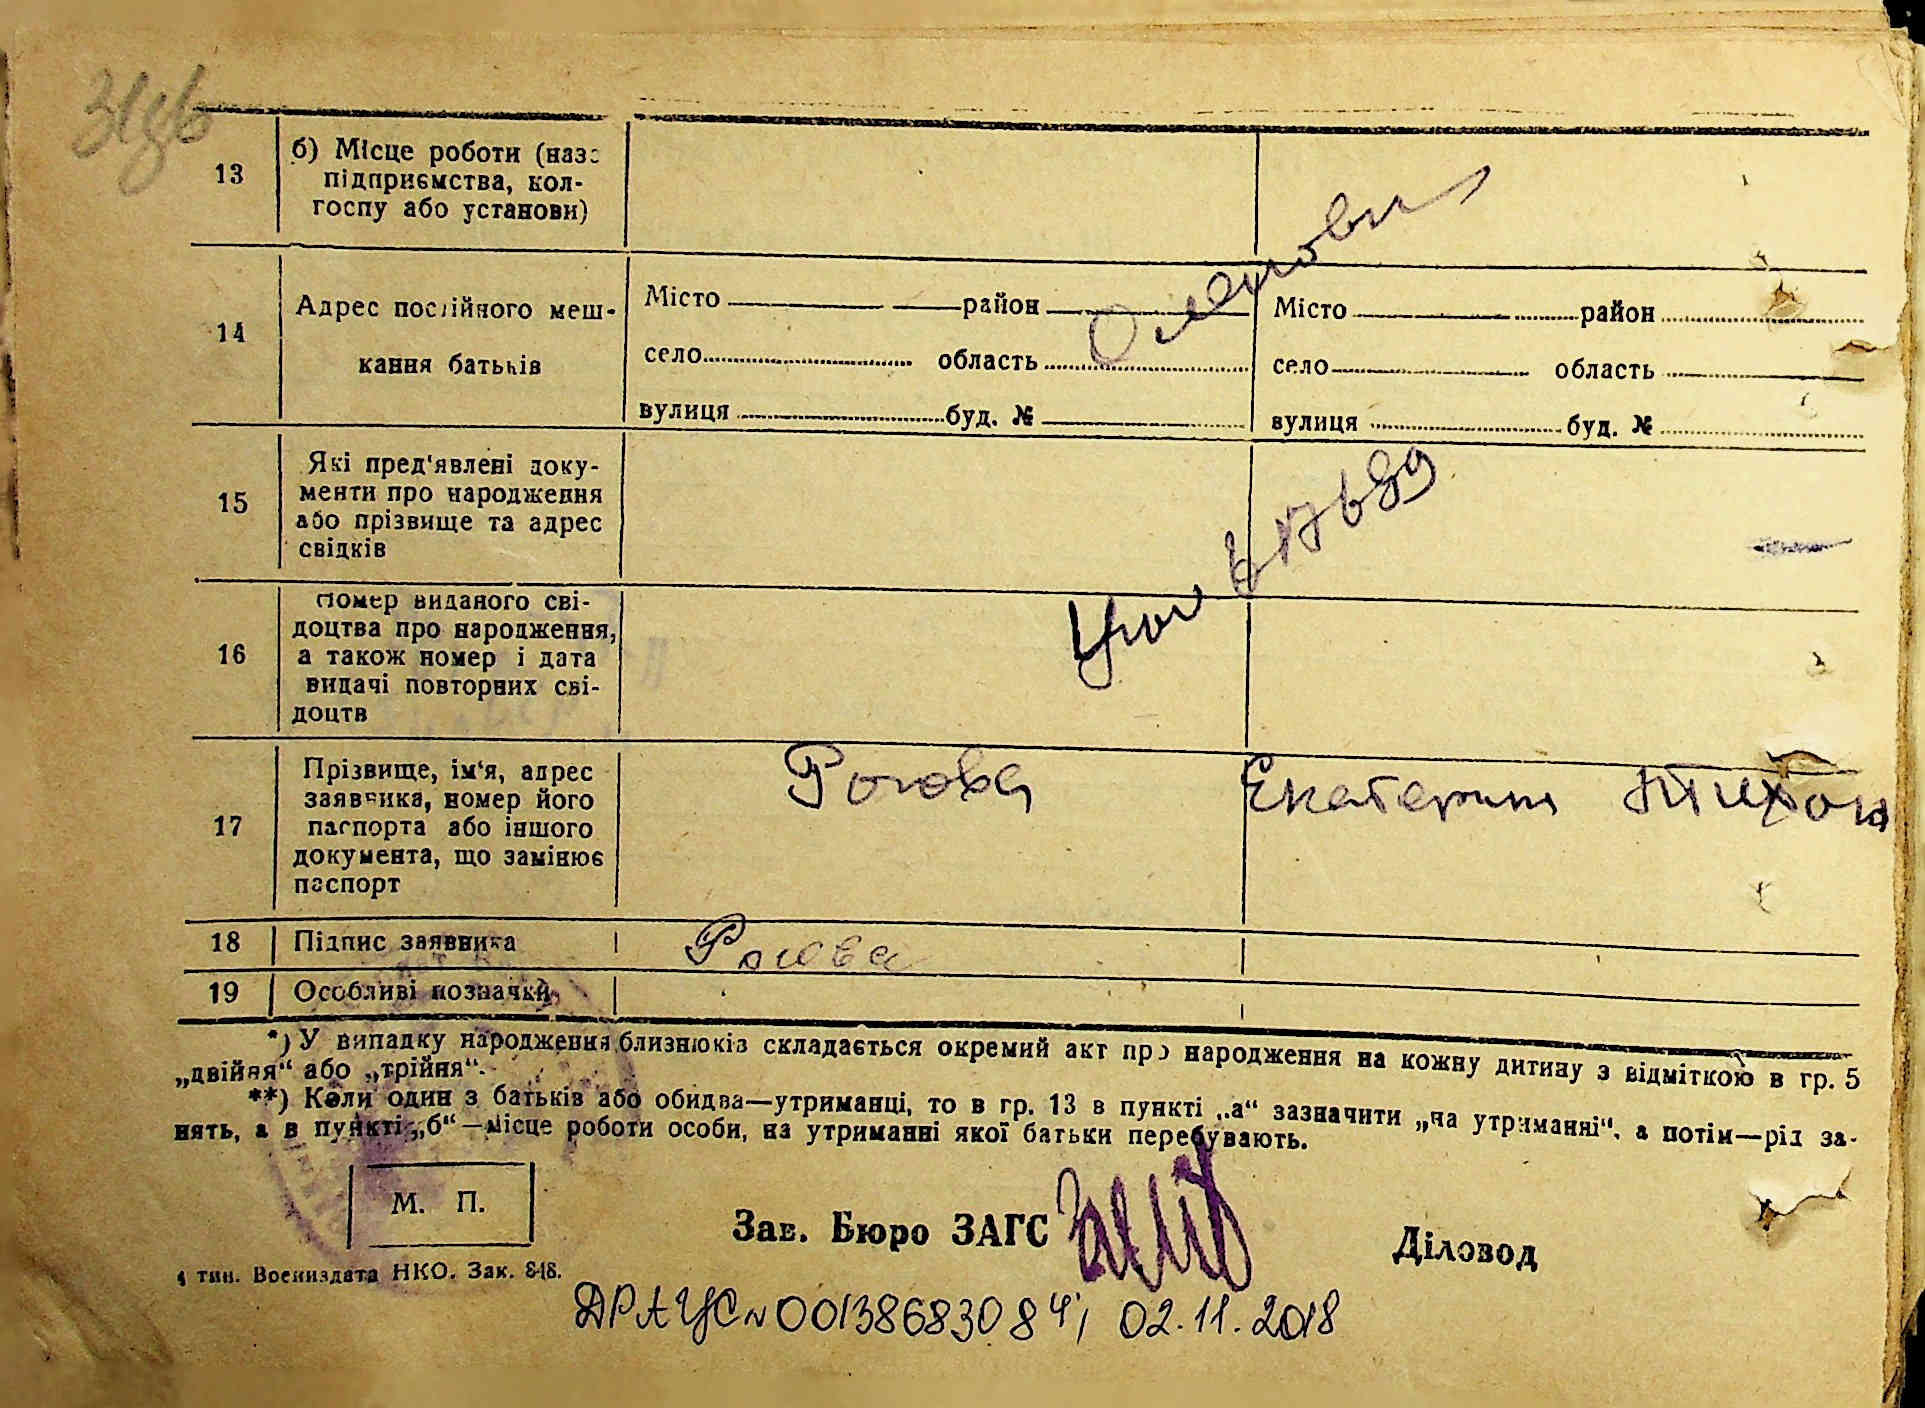 31зв
13 б) Місце роботи (назв підприємства, кол-
госпу або установи)
14 Адрес постійного меш-
кання батьків
Місто район
село область
вулиця буд. №
Місто район
село область
вулиця буд. №
15 Які пред'явлені доку-
менти про народження
або прізвище та адрес
свідків
16 Номер виданого сві-
доцтва про народження,
а також номер і дата
видачі повторних сві-
доцтв
17689
17 Прізвище, ім'я, адрес
заявника, номер його
паспорта або іншого
документа, що замінює
паспорт
Рогова Екатерина Тихон
18 Підпис заявника Рогова
19 Особливі позначки
*) У випадку народження близнюків складається окремий акт про народження на кожну дитину з відміткою в гр. 5
„двійня“ або „трійня“.
**) Коли один з батьків або обидва—утриманці, то в гр. 13 в пункті „а“ зазначити „на утриманні“, а потім—рід за-
нять, а в пункті „б“—місце роботи особи, на утриманні якої батьки перебувають.
М. П.
Зав. Бюро ЗАГС
Діловод
4 тип. Воениздата НКО. Зак. 848.
ДРАЦС N 00138683084, 02.11.2018